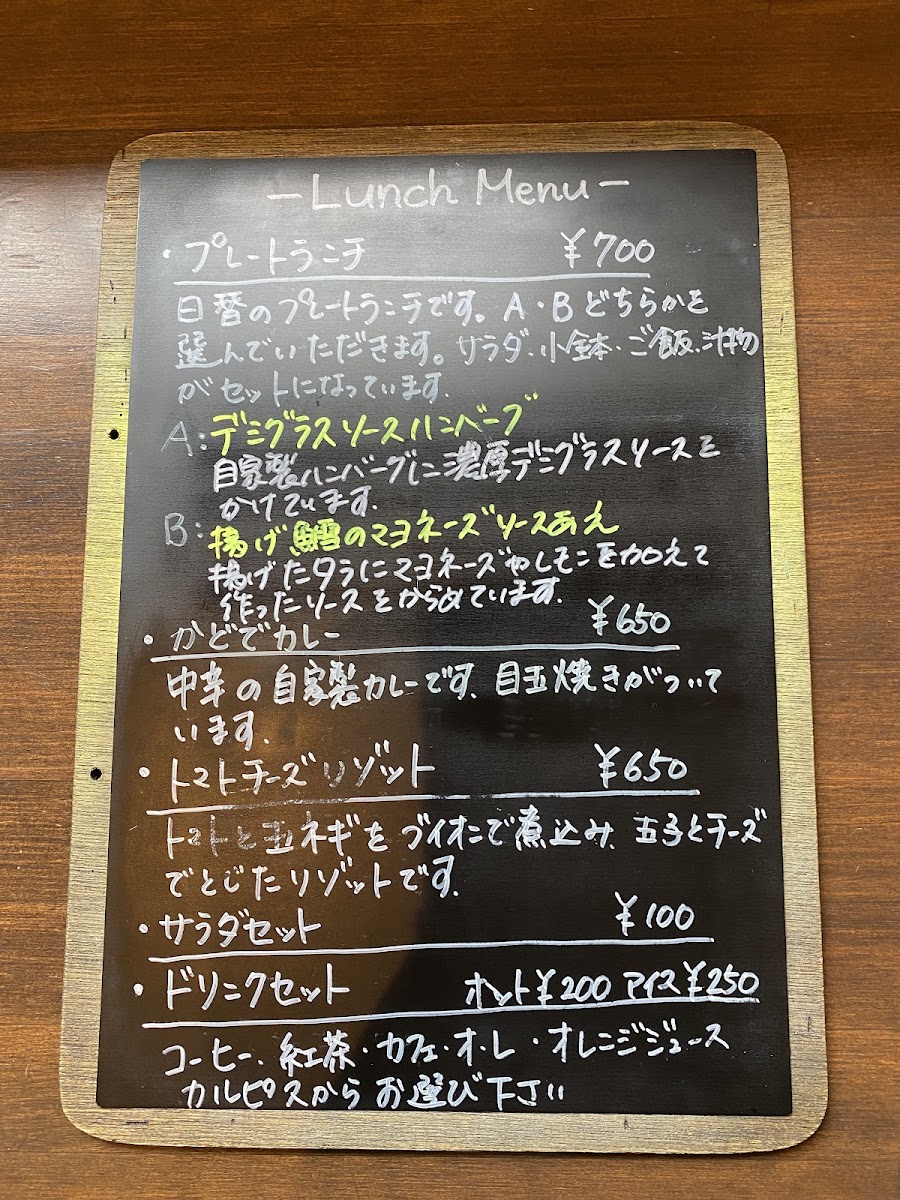 -Lunch Menu-
・プレートランチ ¥700
日替のプレートランチです。A・Bどちらかを
選んでいただきます。サラダ、小鉢、ご飯、汁物
がセットになっています。
A:デミグラスソースハンバーグ
自家製ハンバーグに濃厚デミグラスソースを
かけています。
B:揚げ鱈のマヨネーズソースあえ
揚げたタラにマヨネーズやしそこを加えて
作ったソースをからめています。
・かどでカレー ¥650
中辛の自家製カレーです。目玉焼きがついて
います。
・トマトチーズリゾット ¥650
トマトと玉ネギをブイオンで煮込み、玉子とチーズ
でとじたリゾットです。
・サラダセット ¥100
・ドリンクセット ホット¥200 アイス¥250
コーヒー、紅茶・カフェ・オ・レ・オレンジジュース
カルピスからお選び下さい